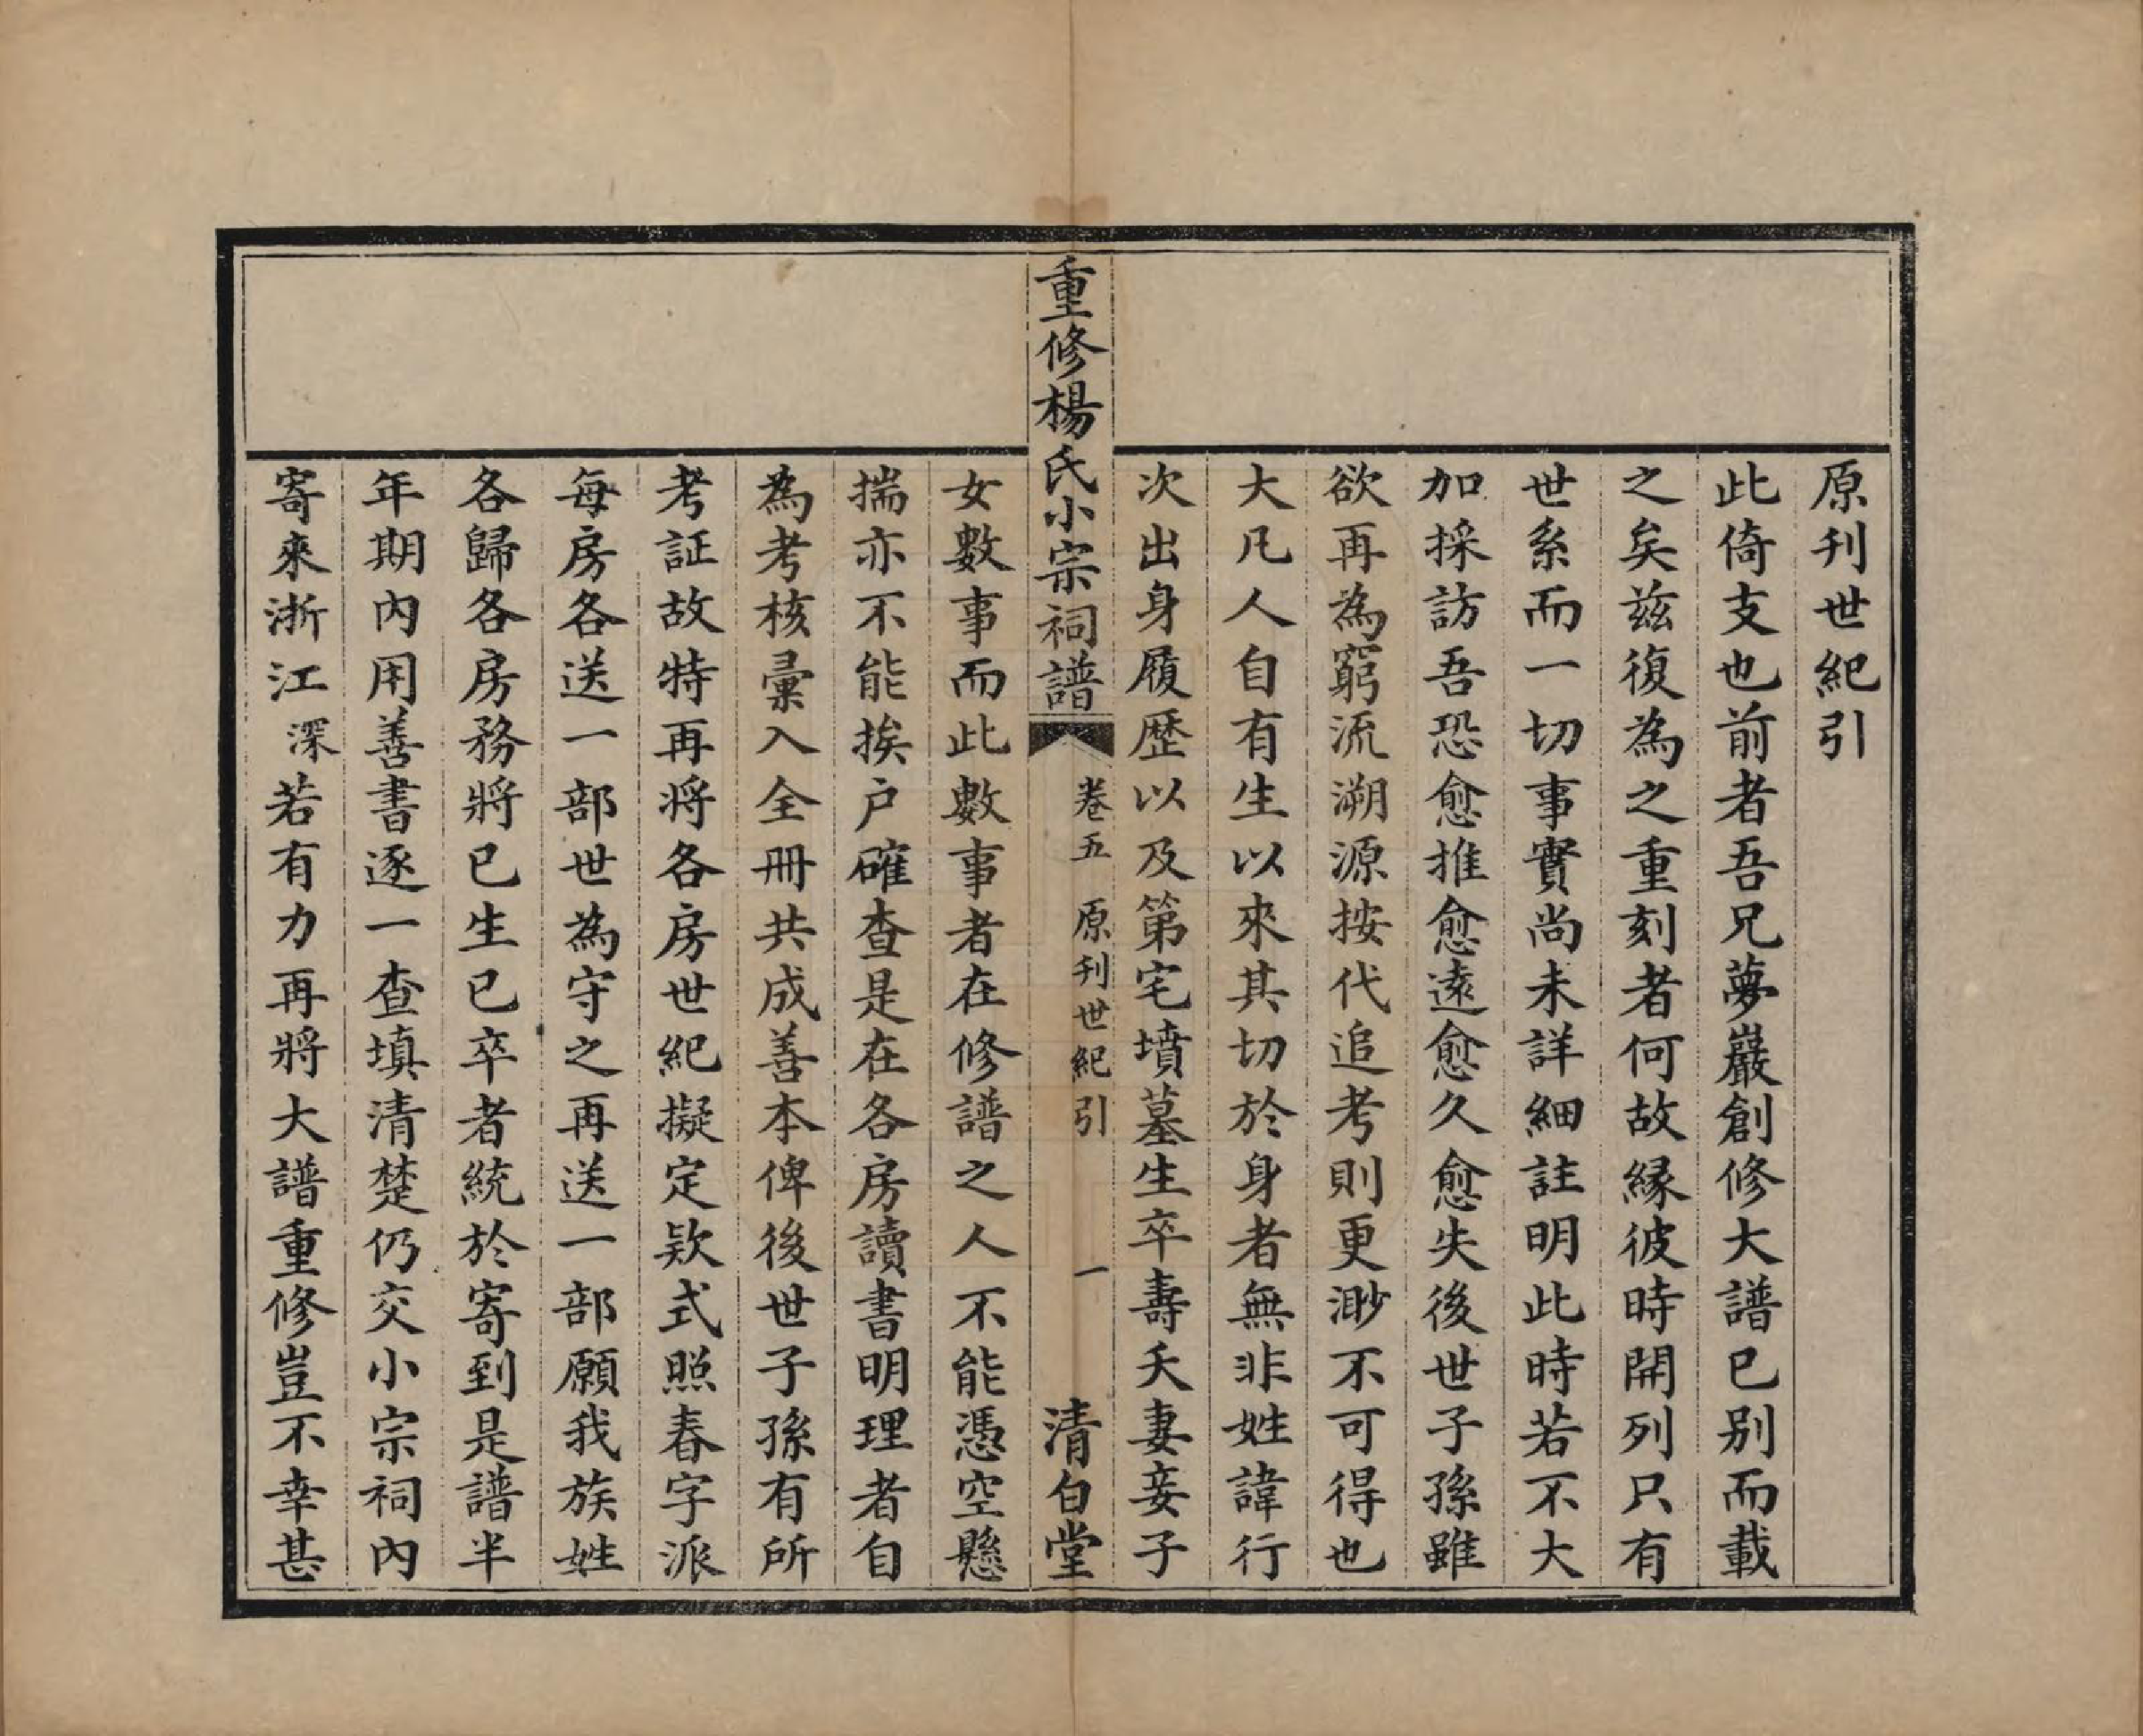 原刊世紀引
此倚支也前者吾兄夢巖創修大譜已别而載
之矣兹復為之重刻者何故緣彼時開列只有
世系而一切事實尚未詳細註明此時若不大
加採訪吾恐愈推愈遠愈久愈失後世子孫雖
欲再為窮流溯源按代追考則更渺不可得也
大凡人自有生以來其切於身者無非姓諱行
次出身履歷以及第宅墳墓生卒壽夭妻妾子
重修楊氏小宗祠譜 卷五 原刊世紀引 一 清白堂
女數事而此數事者在修譜之人不能憑空懸
揣亦不能挨户確查是在各房讀書明理者自
為考核彙入全冊共成善本俾後世子孫有所
考証故特再將各房世紀擬定欵式照春字派
每房各送一部世為守之再送一部願我族姓
各歸各房務將已生已卒者統於寄到是譜半
年期內用善書逐一查填清楚仍交小宗祠內
寄來浙江深若有力再將大譜重修豈不幸甚